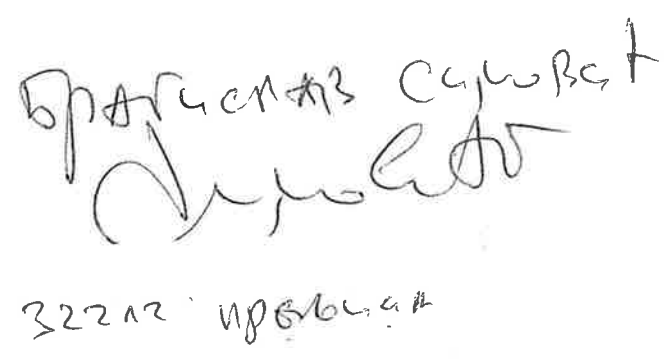 Драгислав Симовић
32212 Прељина